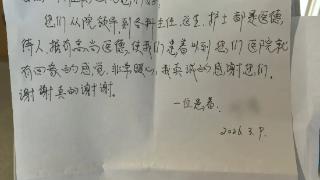 您们从院领导到各科主任、医生、护士都是医德,
待人接物高尚医德,使我们患者以到您们医院就
有回家的感觉,非常暖心,我真诚的感谢您们。
谢谢真的谢谢。
一位患者
2026.3.9.